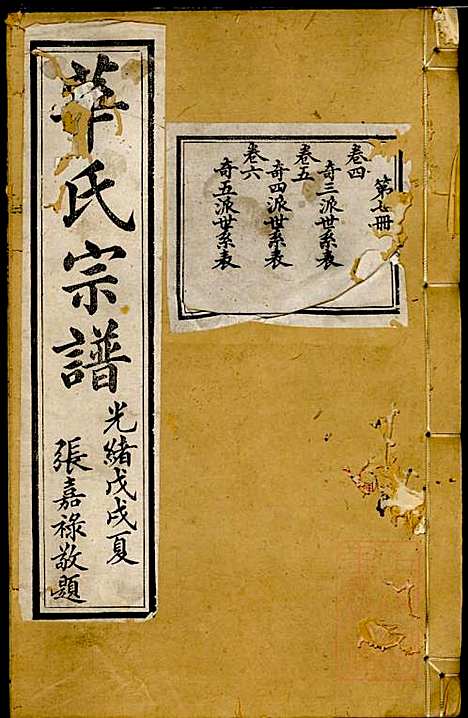 第七冊
卷四
奇三派世系表
卷五
奇四派世系表
卷六
奇五派世系表
華氏宗譜
光緒戊戌夏
張嘉祿敬題